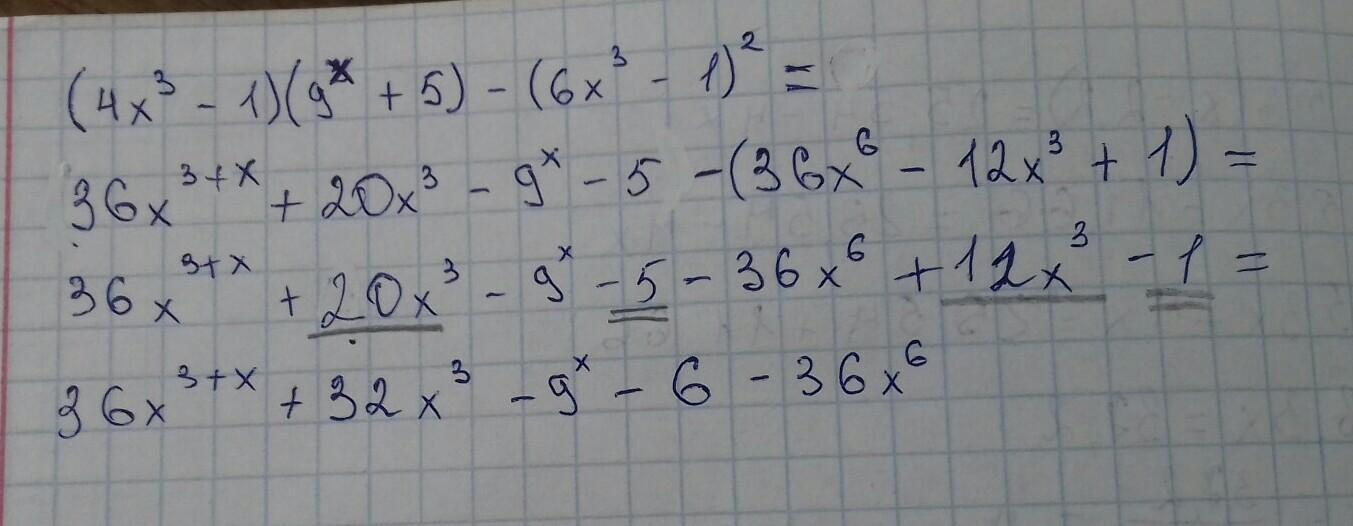 (4x³ - 1)(9ˣ + 5) - (6x³ - 1)² =
36x³⁺ˣ + 20x³ - 9ˣ - 5 - (36x⁶ - 12x³ + 1) =
36x³⁺ˣ + 20x³ - 9ˣ - 5 - 36x⁶ + 12x³ - 1 =
36x³⁺ˣ + 32x³ - 9ˣ - 6 - 36x⁶